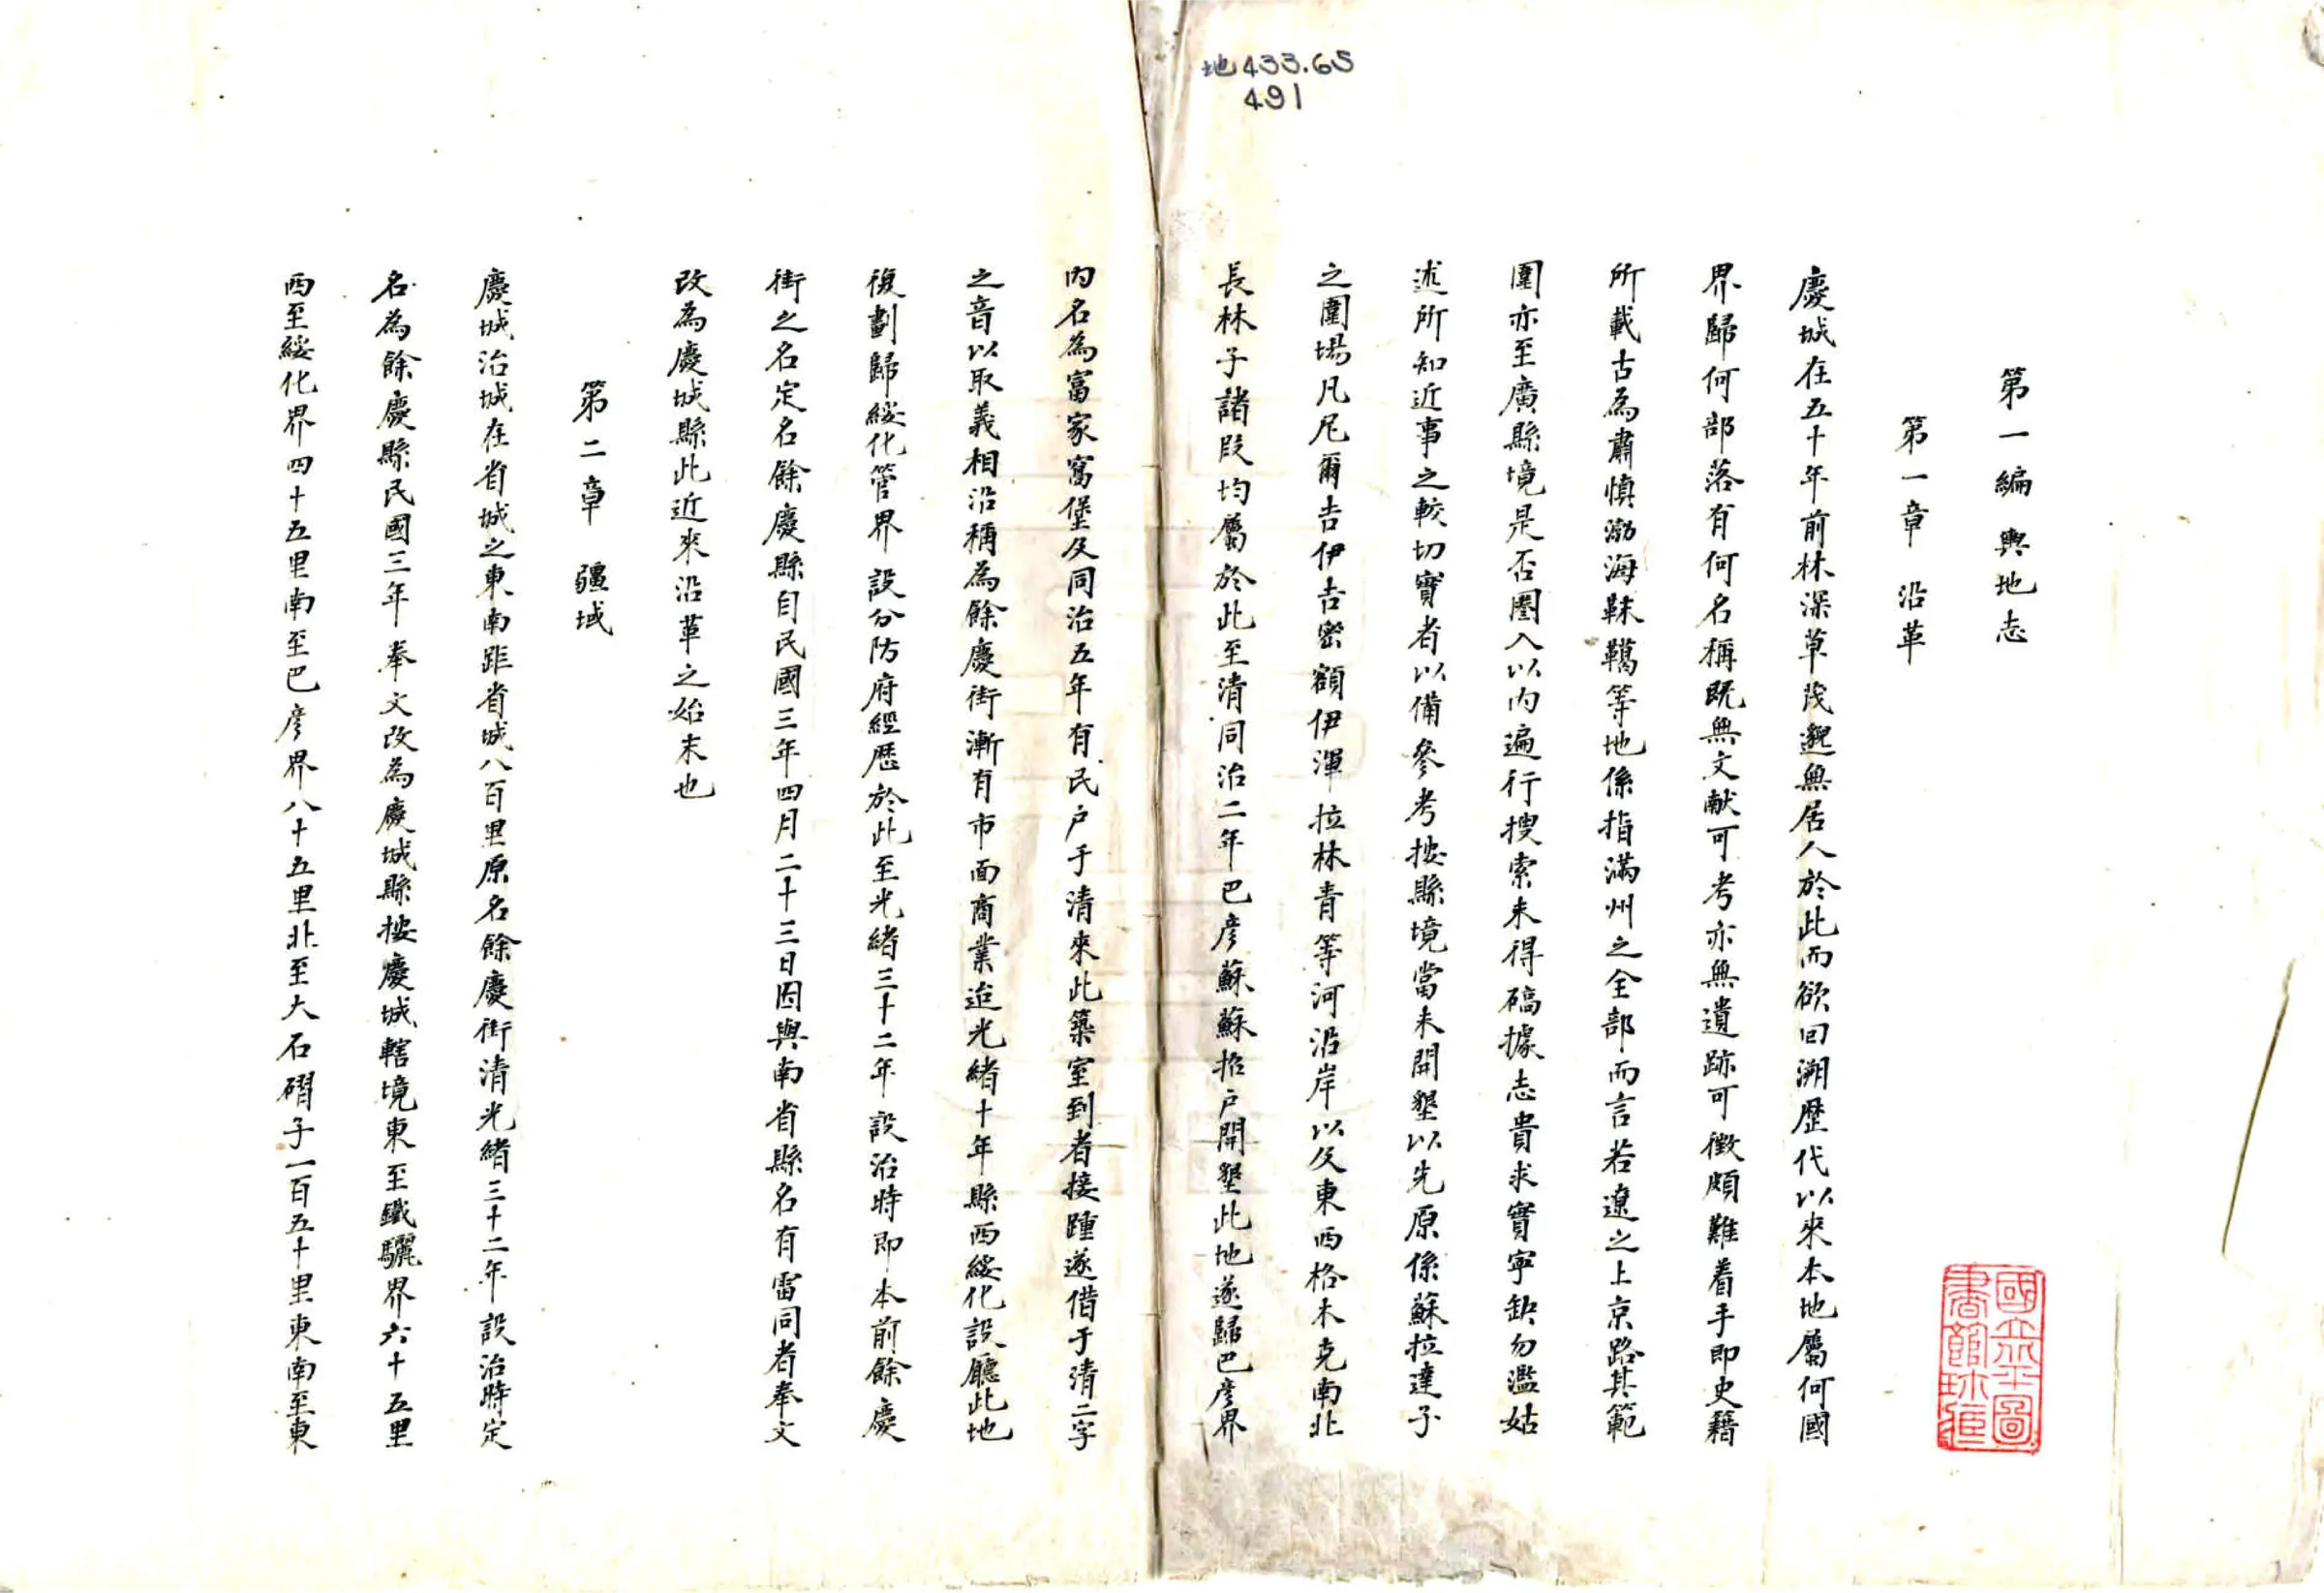 地433.65
491
第一編 輿地志
第一章 沿革
慶城在五十年前林深草茂邈無居人於此而欲回溯歷代以來本地屬何國
界歸何部落有何名稱既無文献可考亦無遺跡可徵頗難着手即史籍
所載古為肅慎渤海靺鞨等地係指滿州之全部而言若遼之上京路其範
圍亦至廣縣境是否圈入以内遍行搜索未得碻據志貴求實寧缺勿濫姑
述所知近事之較切實者以備參考按縣境當未開墾以先原係蘇拉達子
之圍場凡尼爾吉伊吉密額伊渾拉林青等河沿岸以及東西格木克南北
長林子諸段均屬於此至清同治二年巴彦蘇蘇招户開墾此地遂歸巴彦界
内名為富家窩堡及同治五年有民户于清來此築室到者接踵遂借于清二字
之音以取義相沿稱為餘慶街漸有市面商業迨光緒十年縣西綏化設廳此地
復劃歸綏化管界設分防府經歷於此至光緒三十二年設治時即本前餘慶
街之名定名餘慶縣自民國三年四月二十三日因與南省縣名有雷同者奉文
改為慶城縣此近來沿革之始末也
第二章 疆域
慶城治城在省城之東南距省城八百里原名餘慶街清光緒三十二年設治時定
名為餘慶縣民國三年奉文改為慶城縣按慶城轄境東至鐵驪界六十五里
西至綏化界四十五里南至巴彦界八十五里北至大石磖子一百五十里東南至東
國立北平圖
書館珍藏